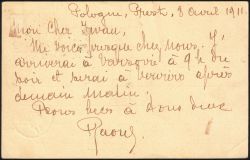 Pologne, Brest, 3 avril 1911
Mon Cher Iwan,
Me voici presque chez nous. J'
arriverai à Varsovie à 9 h du
soir et serai à Verviers après
demain matin.
Bons becs à tous deux
Raoul